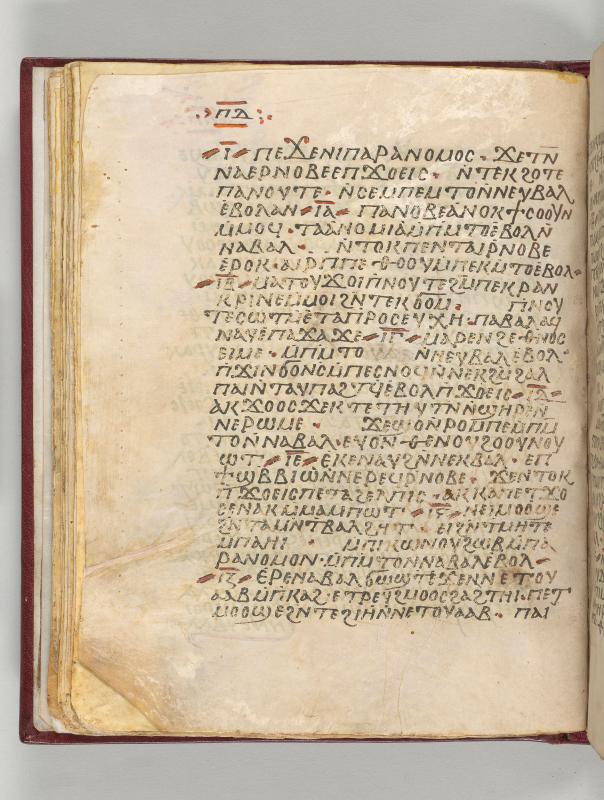 ⲡⲇ
ⲓ̅ ⲡⲉ ϫⲉⲛⲓⲡⲁⲣⲁⲛⲟⲙⲟⲥ · ϫⲉⲧⲛ̅
ⲛⲁⲉⲣⲛⲟⲃⲉⲉⲡϫⲟⲉⲓⲥ · ⲛ̀ⲧⲉⲕϩⲟⲧⲉ
ⲡⲁⲛⲟⲩⲧⲉ · ⲛ̀ⲥⲉⲙⲡⲉⲙⲧⲟⲛ̀ⲛⲉⲩⲃⲁⲗ
ⲉ̀ⲃⲟⲗⲁⲛ ⲓ̅ⲁ̅ ⲡⲁⲛⲟⲃⲉⲁ̀ⲛⲟⲕϯⲥⲟⲟⲩⲛ
ⲙ̀ⲙⲟϥ · ⲧⲁⲁ̀ⲛⲟⲙⲓⲁⲙ̀ⲡⲙ̀ⲧⲟⲉ̀ⲃⲟⲗⲛ̀
ⲛⲁⲃⲁⲗ · ⲛ̀ⲧⲟⲕⲡⲉⲛⲧⲁⲓⲣⲛⲟⲃⲉ
ⲉ̀ⲣⲟⲕ · ⲁⲓⲣⲡⲡⲉⲑⲟⲟⲩⲙ̀ⲡⲉⲕⲙ̀ⲧⲟⲉ̀ⲃⲟⲗ
ⲓ̅ⲃ̅ ⲙⲁⲧⲟⲩϫⲟⲓ̈ⲡⲛⲟⲩⲧⲉϩⲙ̀ⲡⲉⲕⲣⲁⲛ
ⲕⲣⲓⲛⲉⲙ̀ⲙⲟⲓϩⲛ̀ⲧⲉⲕϭⲟⲙ · ⲡⲛⲟⲩ
ⲧⲉⲥⲱⲧⲙ̀ⲉⲧⲁⲡⲣⲟⲥⲉⲩⲭⲏ · ⲡⲁⲃⲁⲗⲁϥ
ⲛⲁⲩⲉ̀ⲡⲁϫⲁϫⲉ ⲓ̅ⲅ̅ ⲙⲁⲣⲉⲛϩⲉⲑⲛⲟⲥ
ⲉⲓⲙⲉ · ⲙ̀ⲡⲙ̀ⲧⲟ ⲛ̀ⲛⲉⲩⲃⲁⲗⲉ̀ⲃⲟⲗ
ⲡ̀ϫⲓⲛϭⲟⲛⲥⲙ̀ⲡⲉⲥⲛⲟϥⲛ̀ⲛⲉⲕϩⲙ̀ϩⲁⲗ
ⲡⲁⲓ̀ⲛⲧⲁⲩⲡⲁϩⲧϥⲉ̀ⲃⲟⲗⲡ̀ϫⲟⲉⲓⲥ ⲓ̅ⲇ̅
ⲁⲕϫⲟⲟⲥϫⲉⲕⲧⲉⲧⲏⲩⲧⲛ̀ⲛ̀ϣⲏⲣⲉⲛ̀
ⲛⲉⲣⲱⲙⲉ · ϫⲉϣⲟⲛ̀ⲣⲟⲙⲡⲉⲙ̀ⲡⲙ̀
ⲧⲟⲛ̀ⲛⲁⲃⲁⲗ · ⲉⲩⲟ̀ⲛⲑⲉⲛⲟⲩϩⲟⲟⲩⲛⲟⲩ
ⲱⲧ · ⲓ̅ⲉ̅ ⲉ̀ⲕⲉⲛⲁⲩϩⲛ̀ⲛⲉⲕⲃⲁⲗ · ⲉⲡ
ϯⲱⲃⲃⲓⲱⲛ̀ⲛⲉⲣⲉϥⲣⲛⲟⲃⲉ · ϫⲉⲛⲧⲟⲕ
ⲡ̀ϫⲟⲉⲓⲥⲡⲉⲧⲁϩⲉⲗⲡⲓⲥ · ⲁⲕⲕⲁⲡⲉⲧϫⲟ
ⲥⲉⲛⲁⲕⲙ̀ⲙⲁⲙ̀ⲡⲱⲧ · ⲓ̅ⲋ̅ ⲛⲉⲓ̈ⲙⲟⲟϣⲉ
ϩⲛ̀ⲧⲁⲙⲛ̀ⲧⲃⲁⲗϩⲏⲧ · ⲉⲓϩⲛ̀ⲧⲙⲏⲧⲉ
ⲙ̀ⲡⲁⲏⲓ · ⲙ̀ⲡⲓⲕⲱⲛ̀ⲟⲩϩⲱⲃⲙ̀ⲡⲁ
ⲣⲁⲛⲟⲙⲟⲛ · ⲙ̀ⲡⲙ̀ⲧⲟⲛ̀ⲛⲁⲃⲁⲗⲉ̀ⲃⲟⲗ
ⲓ̅ⲍ̅ ⲉ̀ⲣⲉⲛⲁⲃⲁⲗϭⲱϣⲧϫⲉⲛⲛⲉⲧⲟⲩ
ⲁⲁⲃⲙ̀ⲡⲕⲁϩ · ⲉⲧⲣⲉⲩϩⲙⲟⲟⲥϩⲁϩⲧⲏⲓ · ⲡⲉⲧ
ⲙⲟⲟϣⲉϩⲛ̀ⲧⲉϩⲓⲏ̀ⲛⲛⲉⲧⲟⲩⲁⲁⲃ · ⲡⲁⲓ